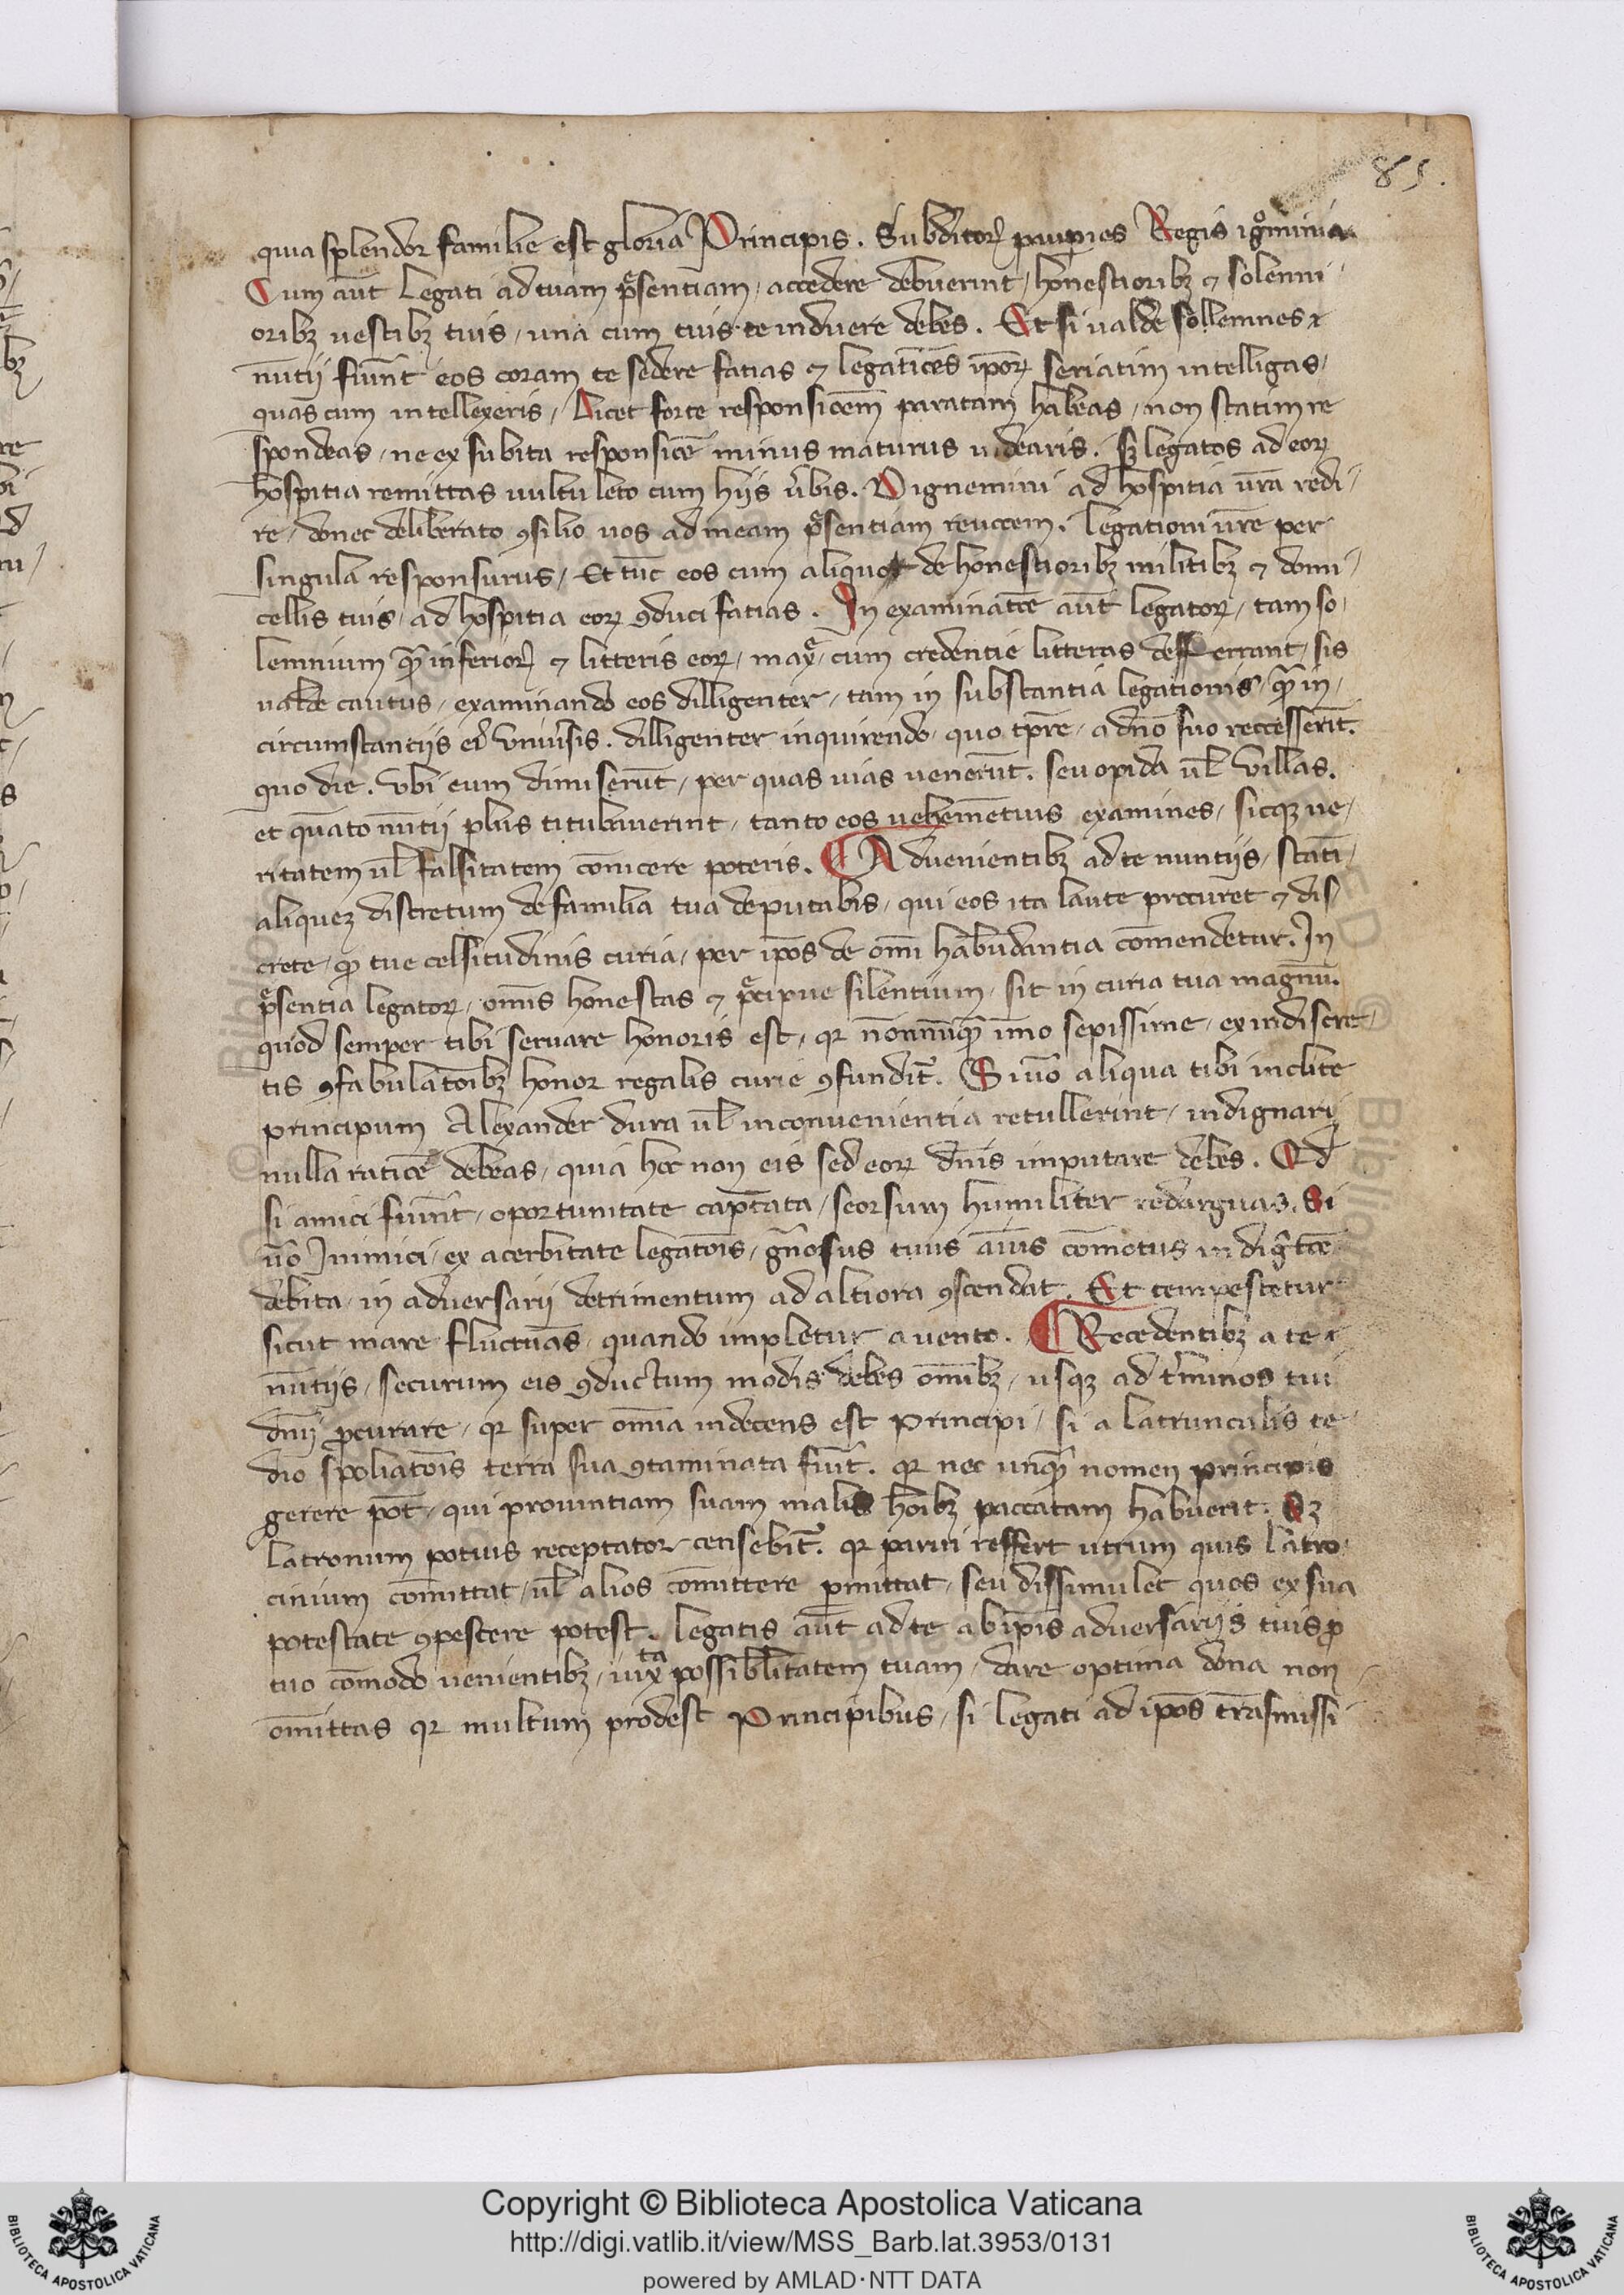 85.
quia splendor familie est gloria Principis. Subditoꝝ paup̱ies Regis ignominia
Cum aūt Legati ad tuam p̄sentiam / accedere debuerint / honestioribꝫ ⁊ solenni
oribꝫ uestibꝫ tuis / una cum tuis te induere debes. Et si ualde sollemnes
nūtij fiūnt eos coram te sedere fatias ⁊ legatiōēs ip̄oꝝ seriatim intelligas /
quas cum intellexeris / Licet forte responsiōēm paratam habeas / non statim re
spondeas / ne ex subita responsiōē minus maturus uidearis. sꝫ legatos ad eoꝝ
hospitia remittas uultu leto cum hijs ūbis. Dignemini ad hospitia ūra redi /
re / donec deliberato ꝯsilio uos ad meam p̄sentiam reuocem. legationi ūre per
singula responsurus / Et tūc eos cum aliquot de honestioribꝫ militibꝫ ⁊ domi /
cellis tuis / ad hospitia eoꝝ ꝯduci fatias. In examinatōē aūt legatoꝝ / tam so /
lemnium qͣ̄ inferioꝝ ⁊ litteris eoꝝ / maxͤ / cum credentie litteras defferrant / sis
ualde cautus / examinando eos dilligenter / tam in substantia legationis / qͣ̄ in /
circumstantijs eiꝰ uniuersis. dilligenter inquirendo / quo tp̄re / a dn̄o suo reccesserīt.
quo die. ubi eum dimiserūt / per quas uias uenerūt. seu opida ul̄ uillas.
et quāto nūtij plus titubauerint / tanto eos uehemētius examines / sicqꝫ ue /
ritatem ul̄ falsitatem cōnicere poteris. ¶ Aduenientibꝫ ad te nuntijs / statī /
aliqueꝫ discretum de familia tua deputabis / qui eos ita laute procuret ⁊ dis /
crete / qͦ tue celsitudinis curia / per ip̄os de om̄i habundantia cōmendetur. In
p̄sentia legatoꝝ / om̄is honestas ⁊ p̄cipue silentium / sit in curia tua magnū.
quod semper tibi seruare honoris est / qꝛ nōnnūqͣ̄ īmo sepissime / ex indiscre /
tis ꝯfabulatōibꝫ honor regalis curie ꝯfundit᷑. Si ūo aliqua tibi inclite
principum Alexander dura ul̄ inconuenientia retullerint / indignari
nulla ratiōē debeas / quia hec non eis sed eoꝝ dn̄is imputare debes. Qd̄
si amici fiūnt / oportunitate captata / seorsum humiliter redarguas. Si
ūo Inimici / ex acerbitate legatōis / gn̄osus tuus aīus cōmotus indigᷓtōē
debita / in aduersarij detrimentum ad altiora ꝯscendat. Et tempestetur
sicut mare fluctuās / quando impletur a uento. ¶ Recedentibꝫ a te
nūtijs / securum eis ꝯductum modis debes om̄ibꝫ / usqꝫ ad t̄minos tui
dn̄ij ꝓcurare / qꝛ super om̄ia indecens est principi / si a latrunculis te
dio spoliatōis terra sua ꝯtaminata fiūt. qꝛ nec unqͣ̄ nomen principis
gerere pōt / qui prouintiam suam malis hōibꝫ paccatam habuerit. Qꝫ
latronum potius receptator censebit᷑. qꝛ parui reffert utrum quis latro
cinium cōmittat / ul̄ alios cōmittere ꝑmittat / seu dissimulet quos ex sua
potestate ꝯpescere potest. legatis aūt ad te ab ip̄is aduersarijs tuis ꝓ
tuo cōmodo uenientibꝫ / iuxta possibilitatem tuam / dare optima dona non
omittas qꝛ multum prodest Principibus / si legati ad ip̄os trāsmissi
Copyright © Biblioteca Apostolica Vaticana
http://digi.vatlib.it/view/MSS_Barb.lat.3953/0131
powered by AMLAD·NTT DATA
BIBLIOTECA APOSTOLICA VATICANA
BIBLIOTECA APOSTOLICA VATICANA